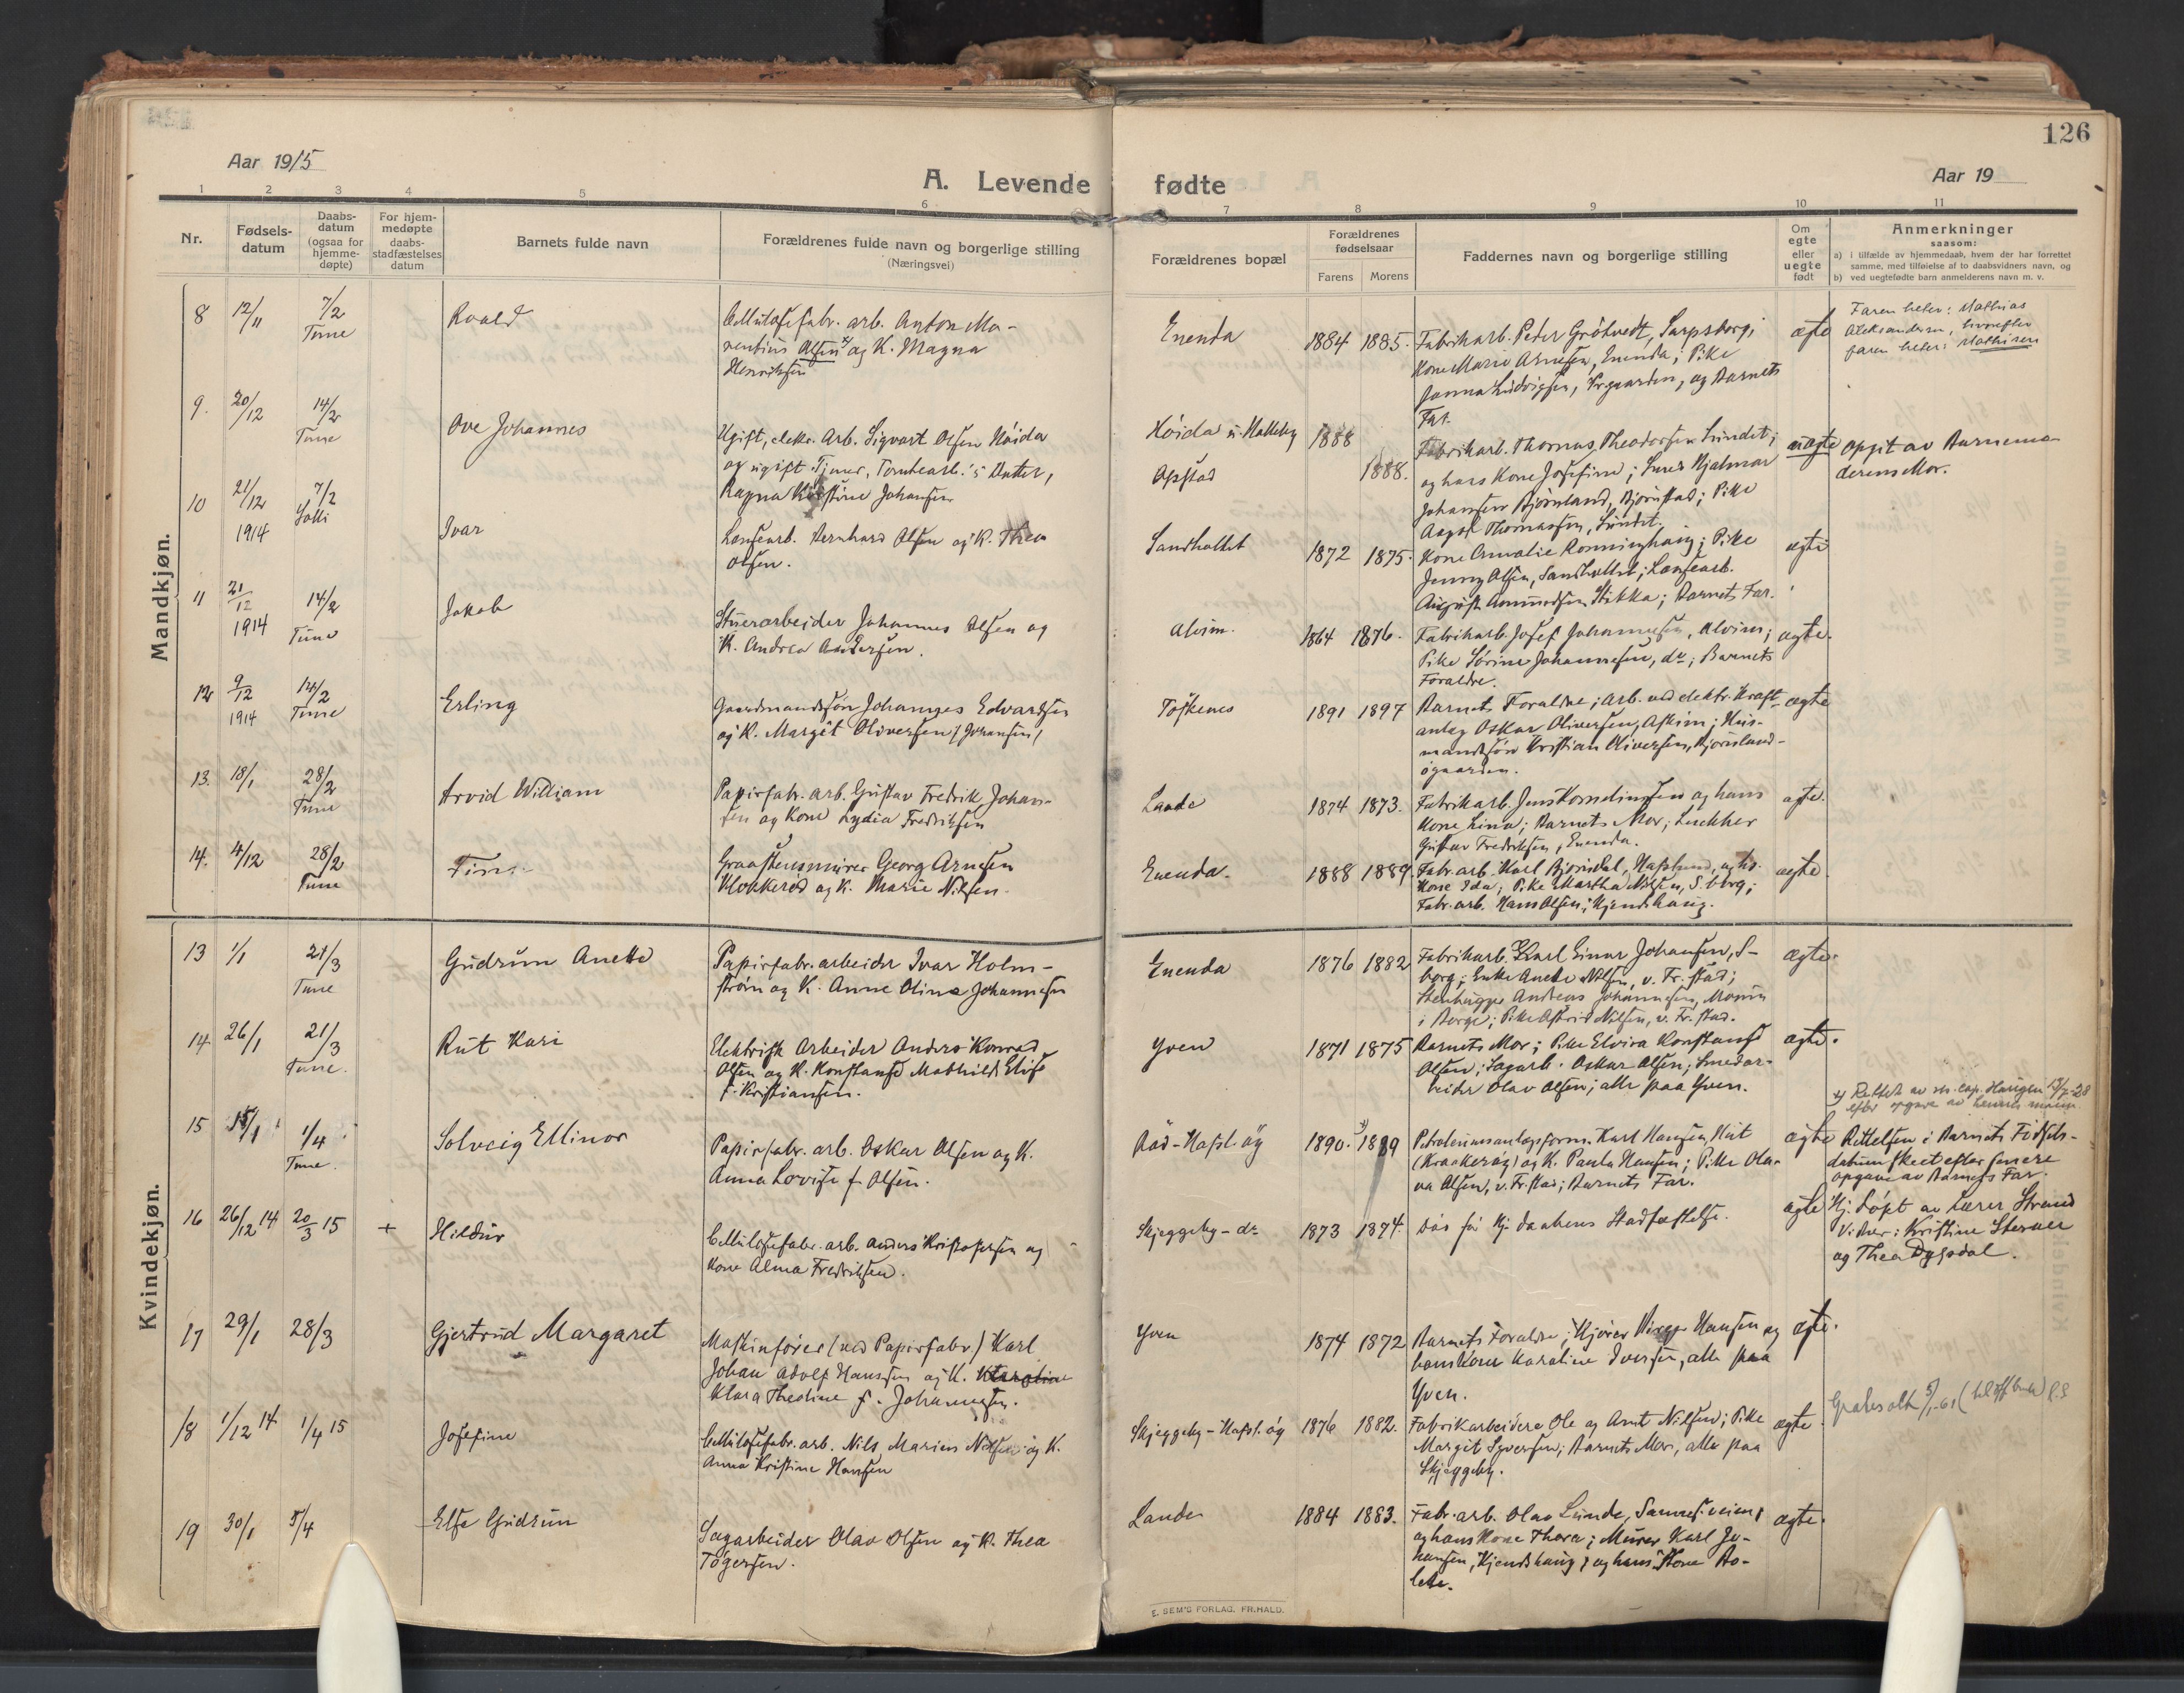 126
Aar 1915
A. Levende fødte
Aar 19
1 2 3 4 5 6 7 8 9 10 11
Nr.
Fødsels-
datum
Daabs-
datum
(ogsaa for
hjemme-
døpte)
For hjem-
medøpte
daabs-
stadfæstelses
datum
Barnets fulde navn
Forældrenes fulde navn og borgerlige stilling
(Næringsvei)
Forældrenes bopæl
Forældrenes
fødselsaar
Farens Morens
Faddernes navn og borgerlige stilling
Om
egte
eller
uegte
født
Anmerkninger
saasom:
a) i tilfælde av hjemmedaab, hvem der har forrettet
samme, med tilføielse af to daabsvidners navn, og
b) ved uegtefødte barn anmelderens navn m. v.
Mandkjøn.
8 12/11 7/2 Tune
Roald
Cellulosefabr. arb. Anton Ma-
rentius Olsen x) og K. Magna
Henriksen
Enenda
1884 1885.
Fabrikarb. Peder Grötvedt, Sarpsborg;
Kone Marie Arnesen, Enenda; Pike
Janna Ludvigsen, , og Barnets
Far.
egte
Faren heter: Mathias
Aleksandersen, hvorefter
faren heter: Mathisen
9. 20/12 14/2 Tune
Ove Johannes
Ugift, elektr. Arb. Sigvart Olsen Höida
og ugift Tjener, Tomtearb.'s Datter,
Ragna Kristine Johansen
Höida u. Kalleby
Opstad
1888
1888.
Fabrikarb. Thomas Theodorsen Lundet;
og hans Kone Josefine; Snes Hjalmar
Johansen Björnland, Björnstad; Pike
Aagot Thomassen, Lundet.
uegte
Opgit av Barnemo-
derens Mor.
10 21/12 1914 7/2 Solli
Ivar
Lensearb. Bernhard Olsen og K. Thea
Olsen.
Sandholtet
1872 1875.
Kone Amalie Ronninghaug; Pike
Jenny Olsen, Sandholtet; Lensearb.
August Amundsen Stikka; Barnets Far.
egte
11 21/12 1914 14/2 Tune
Jakob
Stuerarbeider Johannes Olsen og
K. Andrea Andersen.
Alvim.
1864 1876.
Fabrikarb. Josef Johannesen, Alvim;
Pike Sörine Johannesen, do; Barnets
Foraldre.
egte.
12 9/12 1914 14/2 Tune
Erling
Gaardmandssön Johannes Edvardsen
og K. Margit Oliversen (Johansen)
Töskenes
1891 1897
Barnets Foraldre; Arb. ved elektr. Kraft-
anlag Oskar Oliversen, Askim; Hus-
mandssön Kristian Oliversen, Björnland-
ögaarden.
egte
13. 18/1 28/2 Tune
Arvid William
Papirfabr. arb. Gustav Fredrik Johan-
sen og Kone Lydia Fredriksen
Lande
1874 1873.
Fabrikarb. Jens Korneliussen og hans
Kone Lina; Barnets Mor; Snekker
Gustav Fredriksen, Enenda.
egte.
14. 4/12 28/2 Tune
Finn
Graastensmurer Georg Arnesen
Klokkeröd og K. Marie Nilsen.
Enenda.
1888 1889
Fabr. arb. Karl Björndal, Hafslund, og hs.
Kone Ida; Pike Martha Nilsen, S.borg;
Fabr. arb. Hans Olsen, Kjendshaug.
egte.
Kvindekjøn.
13 1/1 21/3 Tune
Gudrun Anette
Papirfabr. arbeider Ivar Holm-
ström og K. Anne Oline Johannesen
Enenda
1876 1882
Fabrikarb. Karl Einar Johansen, S-
borg; Enke Anette Nilsen, v. Fr.stad;
Stenhugger Andreas Johannesen, Moum
i Borge; Pike Astrid Nilsen, v. Fr. stad.
egte.
14 26/1 21/3 Tune.
Rut Kari
Elektrisk Arbeider Anders Konrad
Olsen og K. Konstanse Mathilde Elise
f. Kristiansen.
Yven
1871 1875
Barnets Mor; Pike Elvira Konstanse
Olsen; Sagarb. Oskar Olsen; Smedar-
beider Olav Olsen; alle paa Yven.
egte.
15 15/1 1/4 Tune.
Solveig Ellinor
Papirfabr. arb. Oskar Olsen og K.
Anna Lovise f. Olsen.
Råd-Hafsl. öy
1890. x) 1889
Petroleumsanlagsform. Karl Hansen Hut
(Kraakeröy) og K. Paula Hansen; Pike Ola-
va Olsen, v. Fr. stad; Barnets Far.
egte
x) Rettet av res. cap. Haugen 19/7-28
efter opgave av hennes mann
Rettelsen i Barnets Födsels-
datum skeet efter senere
opgave av Barnets Far.
16 26/12 14 20/3 15 +
Hildur
Cellulosefabr. arb. Anders Kristofersen og
Kone Alma Fredriksen.
Skjeggeby - do
1873 1874.
Döb för Hj. daabens Stadfæstelse.
egte
Hj. döpt av Lærer Strand
Vidner: Kristine Sterner
og Thea Dypdal.
17 29/1 28/3
Gjertrud Margaret
Maskinförer (ved Papirfabr.) Karl
Johan Adolf Hanssen og K. Karoline
Klara Theoline f. Johannesen.
Yven
1874 1872
Barnets Foraldre; Kjörer Hansen og
hans Kone Karoline Iversen, alle paa
Yven.
egte.
18 1/12 14 1/4 15
Josefine
Cellulosefabr. arb. Nils Marius Nilsen og K.
Anna Kristine Hansen
Skjeggeby-Hafsl. öy
1876 1882.
Fabrikarbeidere Ole og Arnt Nilsen; Pike
Margit Syversen; Barnets Mor, alle paa
Skjeggeby.
egte.
5/1-61
19 30/1 5/4
Else Gudrun
Sagarbeider Olav Olsen og K. Thea
Tögersen.
Lande
1884 1883.
Fabr. arb. Olav Lunde, Sannesveien,
og hans Kone Thora; Murer Karl Jo-
hansen, Kjendshaug, og hans Kone Bo-
lette.
egte.
E. SEM'S FORLAG, FR.HALD.